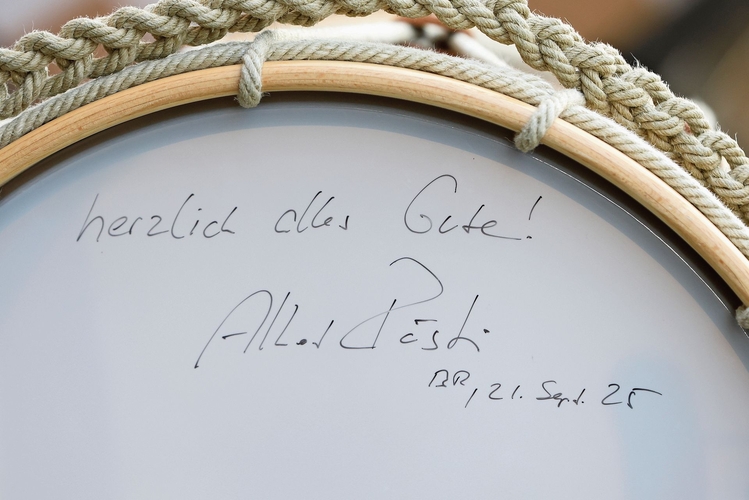 herzlich alles Gute!
Albert Rösti
BR, 21. Sept. 25